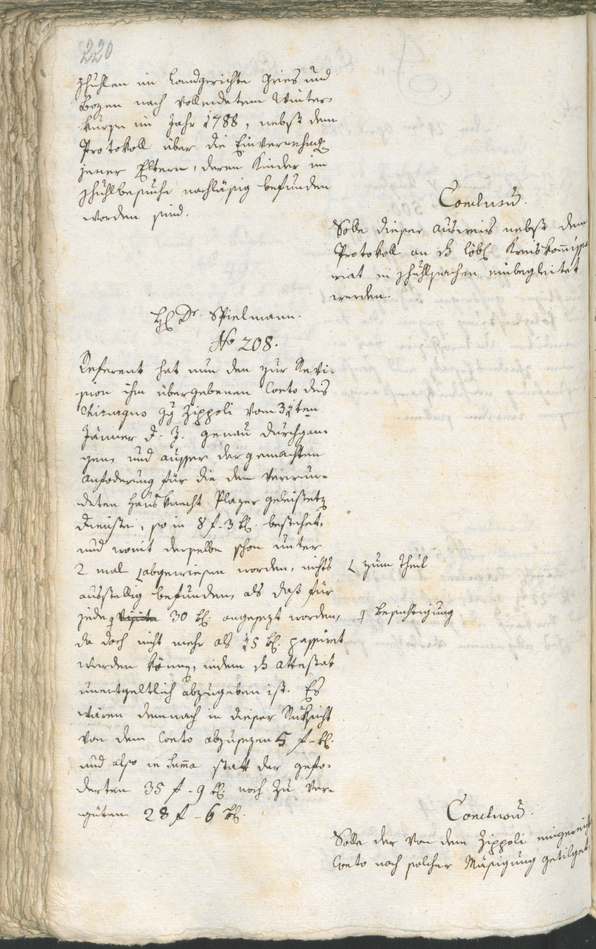 220
Schulen im Landgerichte Gries und
Bozen nach vollendetem Winter-
kurse im Jahr 1788, nebst dem
Protokoll über die Einvernehmg
jener Eltern, deren Kinder im
Schulbesuche nachläßig befunden
worden sind.
Conclusum.
Solle dieser Ausweis nebst dem
Protokoll an löbl. Kreiskommissa-
riat in Schulsachen einbegleitet
werden.
H. Dr. Spielmann.
No 208.
Referent hat nun den zur Revi-
sion ihm übergebenen Conto des
Chirurgus Zippoli vom 31ten
Jänner d. J. genau durchgan-
gen, und ausser der gemachten
Anforderung für die dem verwun-
deten Hausknecht Plazer geleistete
Dienste, so in 8 f - 3 kr. bestehet,
und womit derselbe schon unter
2 mal abgewiesen worden, nichts
zum Theil
ausstellig befunden, als daß für
jede Visite 30 kr. angesezt worden,
Besichtigung
da doch nicht mehr als 15 kr. passirt
werden können, indem Attestat
unentgeltlich abzugeben ist. Es
wären demnach in dieser Rüksicht
von dem Conto abzusezen 5 f - kr.
und also in Suma statt der gefo-
derten 35 f - 9 kr. noch zu ver-
güten 28 f - 6 kr.
Conclusum.
Solle der von dem Zippoli eingereicht
Conto nach solcher Mäsigung getilget